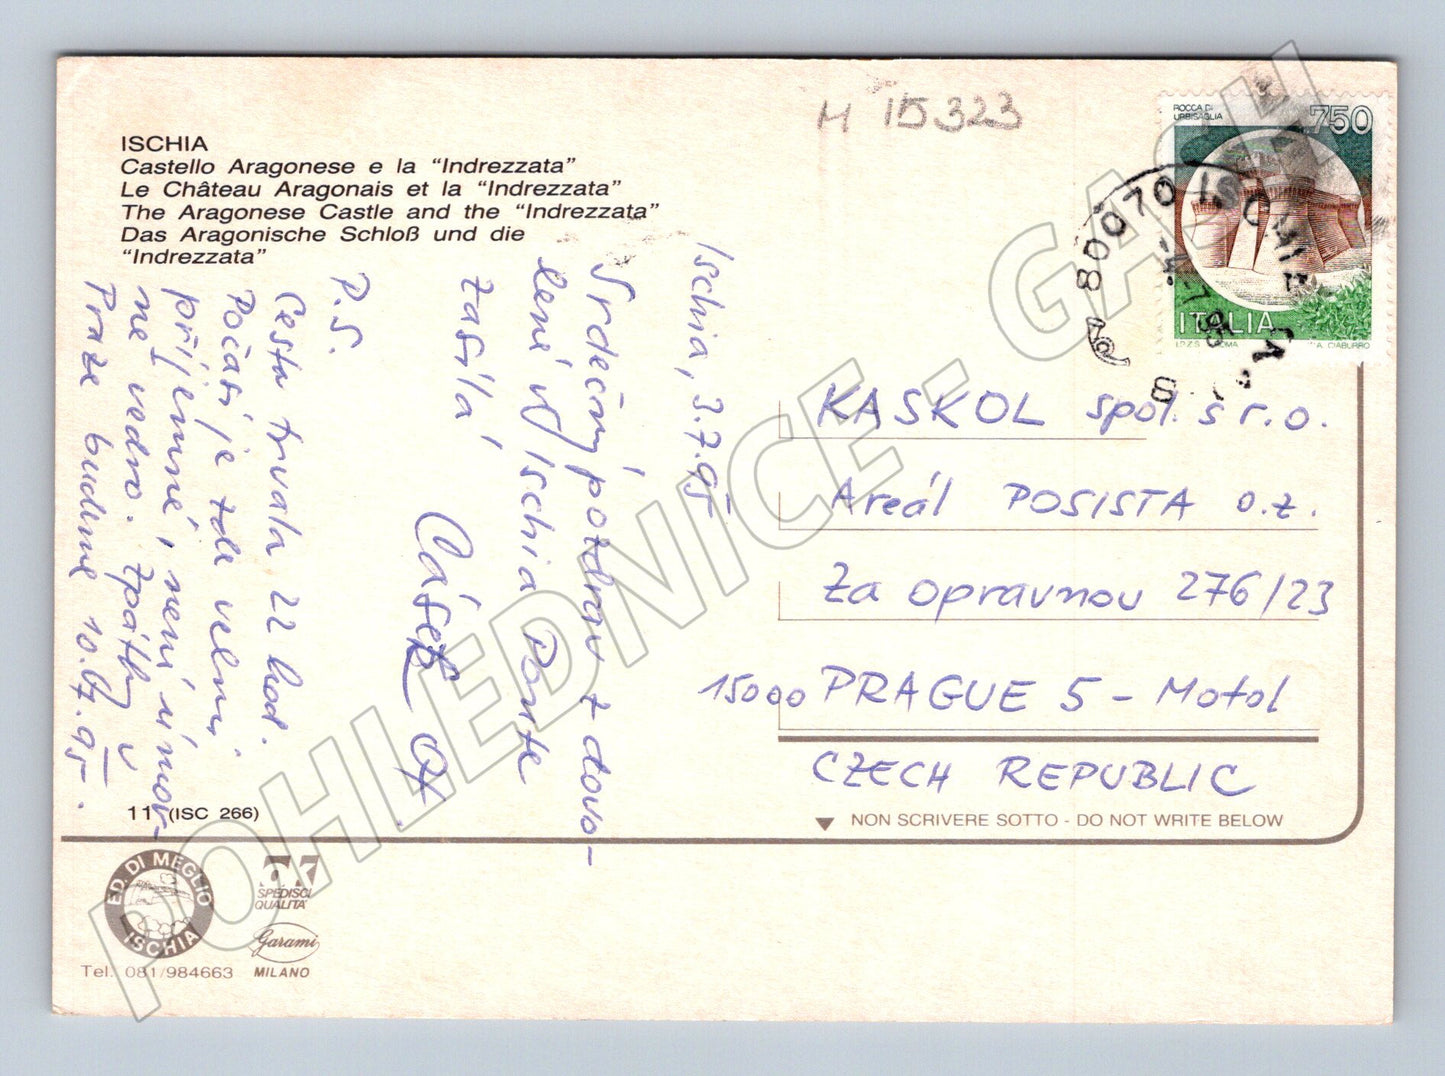 ISCHIA
Castello Aragonese e la "Indrezzata"
Le Château Aragonais et la "Indrezzata"
The Aragonese Castle and the "Indrezzata"
Das Aragonische Schloß und die
"Indrezzata"
M 15323
ROCCA DI
URBISAGLIA
750
ITALIA
I.P.Z.S. ROMA
A. CIABURRO
80070 ISCHIA
Ischia, 3.7.95
Srdečný pozdrav z dovo-
lené v Ischia Porte
zasílá
P.S.
Cesta trvala 22 hod.
Počasí je zde velmi
příjemné, není úmor-
né vedro. Zpátky v
Praze budeme 10.07.95.
KASKOL spol. s r.o.
Areál POSISTA o.z.
Za opravnou 276/23
15000 PRAGUE 5 - Motol
CZECH REPUBLIC
NON SCRIVERE SOTTO - DO NOT WRITE BELOW
11 (ISC 266)
ED. DI MEGLIO
ISCHIA
Tel. 081/984663
SPEDISCI
QUALITA'
Garami
MILANO
POHLEDNICE - GASH